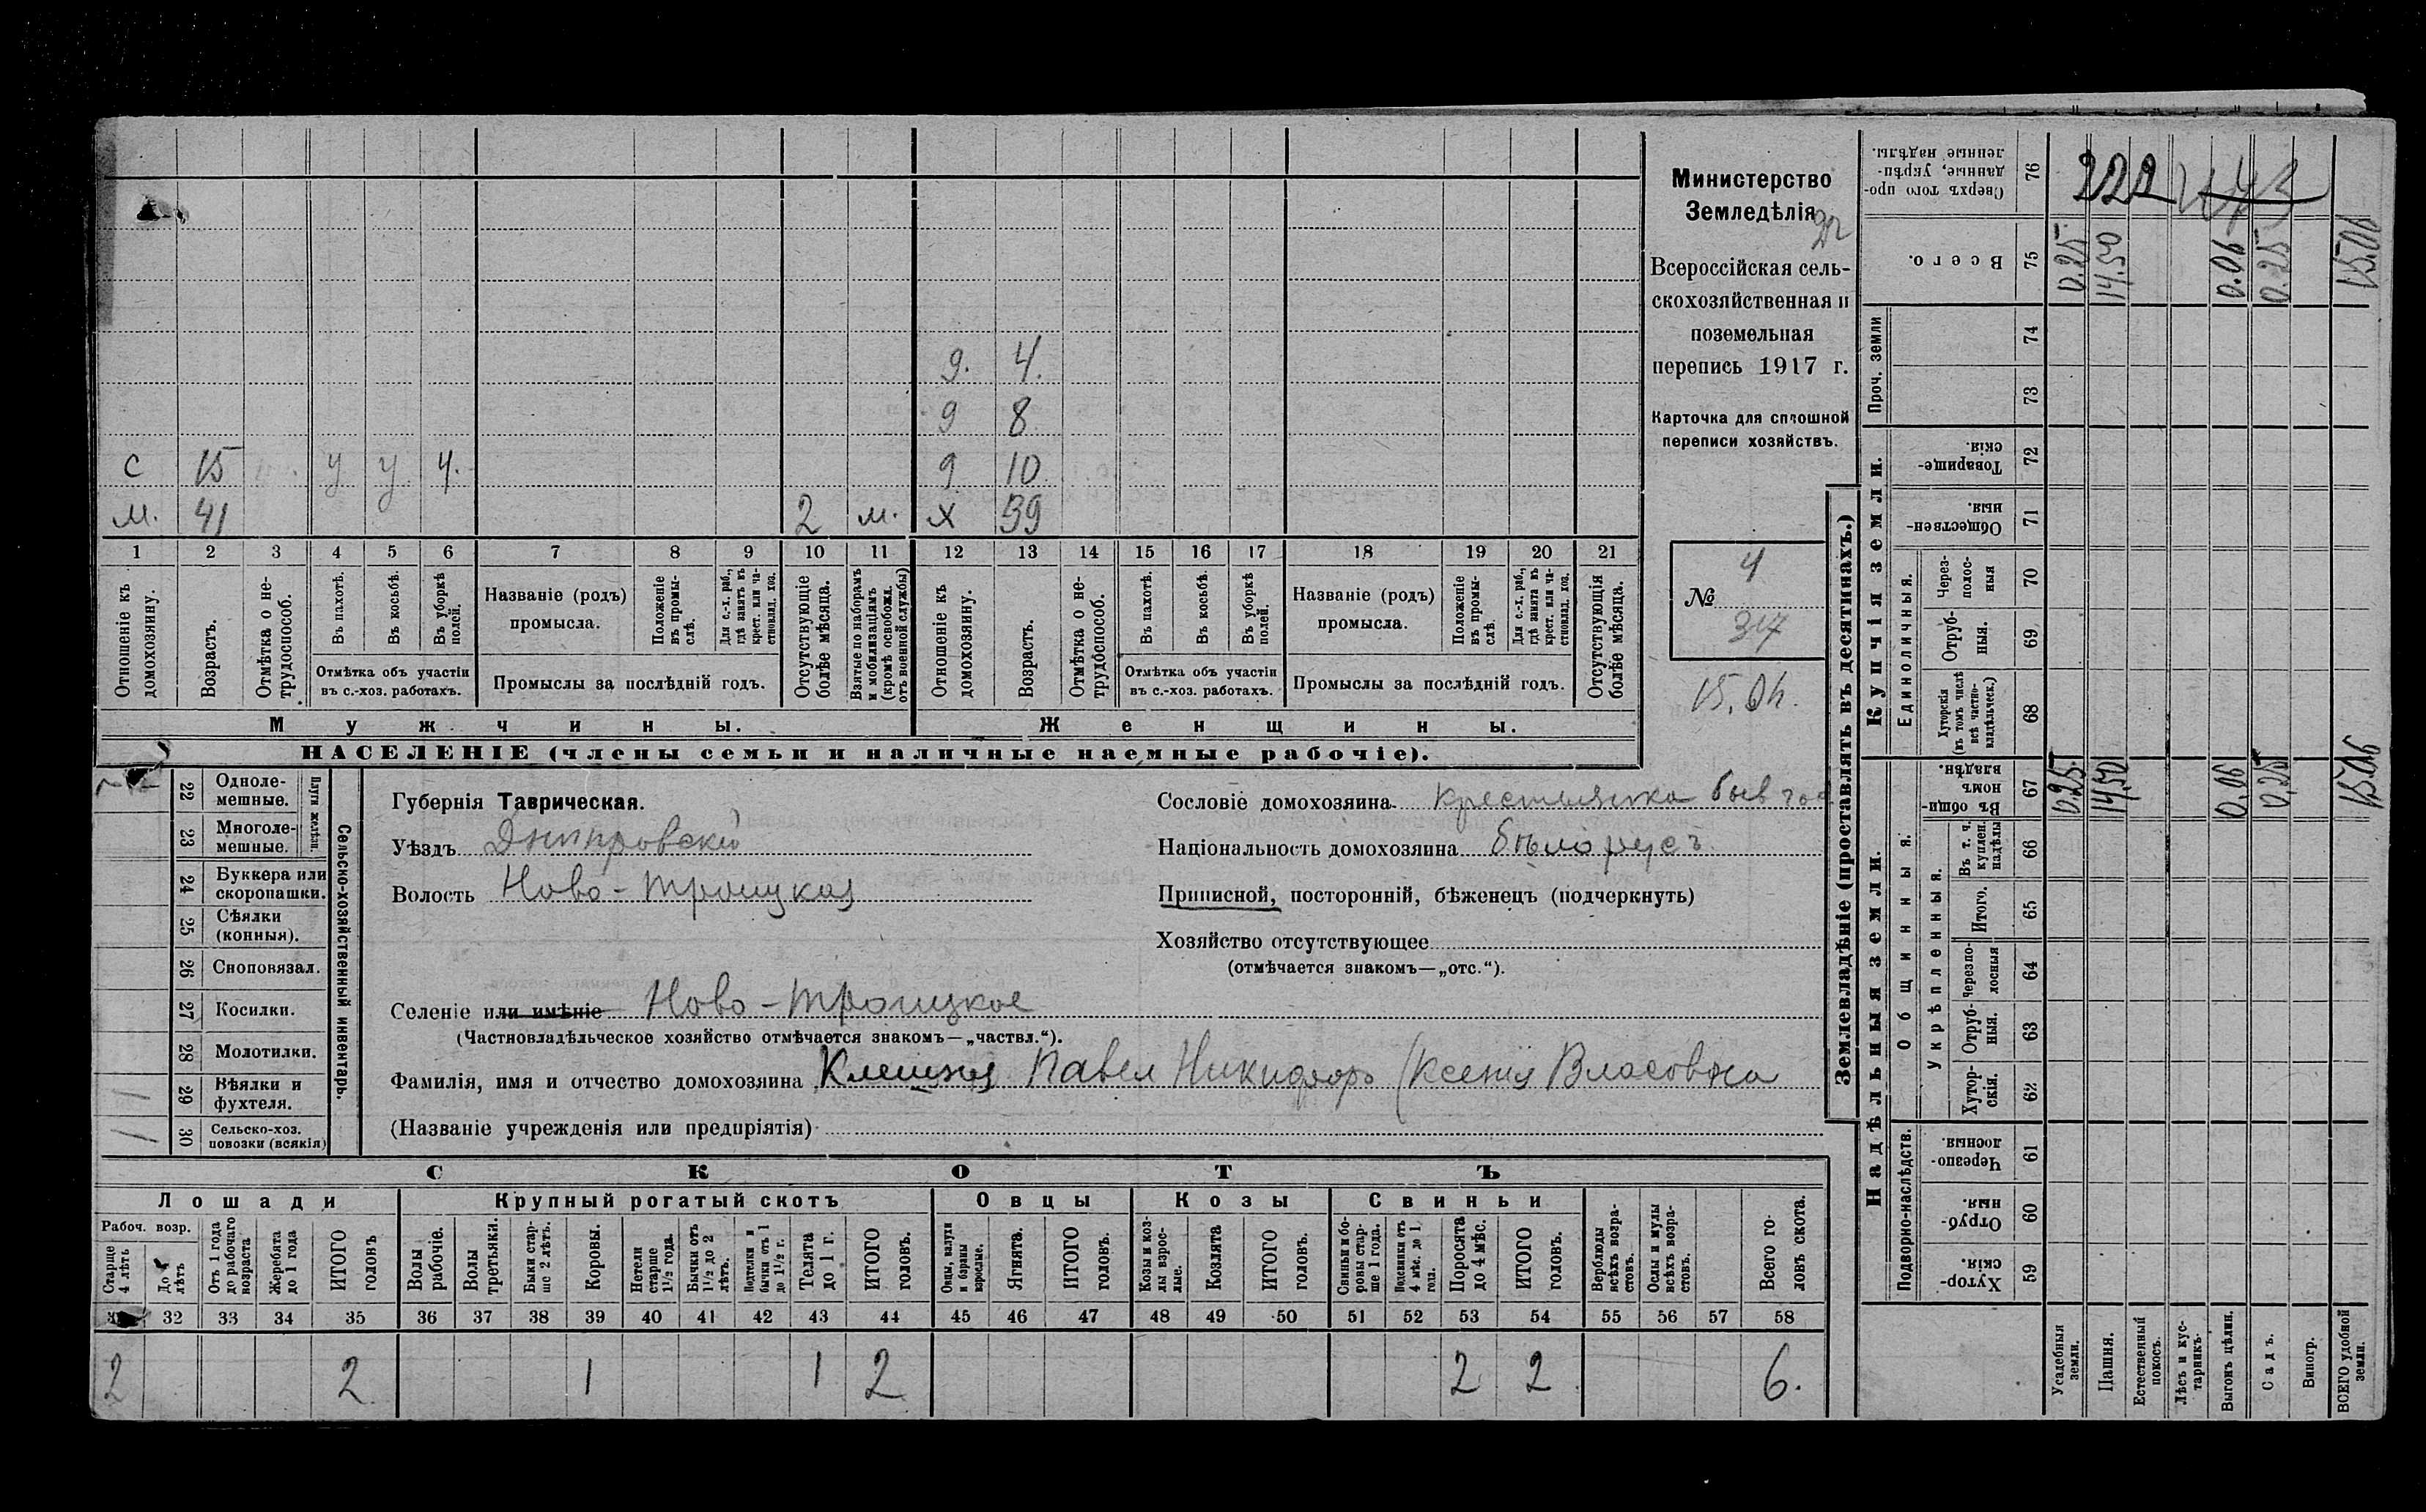 9. 4.
9 8
с 15 у у ч. 9 10
м. 41 2 м. х 39
1 2 3 4 5 6 7 8 9 10 11 12 13 14 15 16 17 18 19 20 21
Отношеніе къ домохозяину.
Возрастъ.
Отмѣтка о не-трудоспособ.
Въ пахотѣ.
Въ косьбѣ.
Въ уборкѣ полей.
Отмѣтка объ участіи
въ с.-хоз. работахъ.
Названіе (родъ)
промысла.
Положеніе въ промы-слѣ.
Для с.-х. раб., гдѣ занятъ въ крест. или ча-стновлад. хоз.
Промыслы за послѣдній годъ.
Отсутствующіе болѣе мѣсяца.
Взятые по наборамъ и мобилизаціямъ (кромѣ освобожд. отъ военной службы)
Отношеніе къ домохозяину.
Возрастъ.
Отмѣтка о не-трудоспособ.
Въ пахотѣ.
Въ косьбѣ.
Въ уборкѣ полей.
Отмѣтка объ участіи
въ с.-хоз. работахъ.
Названіе (родъ)
промысла.
Положеніе въ промы-слѣ.
Для с.-х. раб., гдѣ занята въ крест. или ча-стновлад. хоз.
Промыслы за послѣдній годъ.
Отсутствующія болѣе мѣсяца.
Мужчины.
Женщины.
НАСЕЛЕНІЕ (члены семьи и наличные наемные рабочіе).
Министерство
Земледѣлія
Всероссійская сель-
скохозяйственная и
поземельная
перепись 1917 г.
Карточка для сплошной
переписи хозяйствъ.
№ 4
317
22 Одноле-мешные.
23 Многоле-мешные.
Плуги желѣзн.
24 Буккера или скоропашки.
25 Сѣялки (конныя).
26 Сноповязал.
27 Косилки.
28 Молотилки.
1 29 Вѣялки и фухтеля.
1 30 Сельско-хоз. повозки (всякія)
Сельско-хозяйственный инвентарь.
Губернія Таврическая.
Уѣздъ Днѣпровскій
Волость Ново-Троицкая
Сословіе домохозяина крестьянка быв
Національность домохозяина бѣлорусъ
Приписной, посторонній, бѣженецъ (подчеркнуть)
Хозяйство отсутствующее
(отмѣчается знакомъ—„отс.“).
Селеніе или имѣніе Ново-Троицкое
(Частновладѣльческое хозяйство отмѣчается знакомъ—„частвл.“).
Фамилія, имя и отчество домохозяина Павел Никифоръ (Ксенія Власовна
(Названіе учрежденія или предпріятія)
СКОТЪ
Лошади
Крупный рогатый скотъ
Овцы
Козы
Свиньи
Рабоч. возр.
Старше 4 лѣтъ
До 4 лѣтъ
Отъ 1 года до рабочаго возраста
Жеребята до 1 года
ИТОГО головъ
Волы рабочіе.
Волы третьяки.
Быки стар-ше 2 лѣтъ.
Коровы.
Нетели старше 1½ года.
Бычки отъ 1½ до 2 лѣтъ.
Подтелки и бычки отъ 1 до 1½ г.
Телята до 1 г.
ИТОГО головъ.
Овцы, валухи и бараны взрослые.
Ягнята.
ИТОГО головъ.
Козы и коз-лы взрос-лые.
Козлята
ИТОГО головъ.
Свиньи и бо-ровы стар-ше 1 года.
Подсвинки отъ 4 мѣс. до 1 года.
Поросята до 4 мѣс.
ИТОГО головъ.
Верблюды всѣхъ возра-стовъ.
Ослы и мулы всѣхъ возра-стовъ.
Всего го-ловъ скота.
32 33 34 35 36 37 38 39 40 41 42 43 44 45 46 47 48 49 50 51 52 53 54 55 56 57 58
2 2 1 1 2 2 2 6.
Землевладѣніе (проставлять въ десятинахъ.)
Сверхъ того про-данные, укрѣп-ленные надѣлы. 76 222
Всего. 75 0.25 14.50 0.06 0.25 15.06
Проч. земли 74
73
Купчія земли.
Товарище-скія. 72
Обществен-ныя. 71
Единоличныя.
Через-полос-ныя 70
Отруб-ныя. 69
Хуторскія (въ томъ числѣ всѣ частно-владѣльческ.) 68
Надѣльныя земли.
Общинныя.
Въ общи-номъ владѣн. 67 0.25. 14.50 0.06 0.25 15.06
Укрѣпленныя.
Въ т. ч. куплен. надѣлы 66
Итого. 65
Черезпо-лосныя 64
Отруб-ныя. 63
Хутор-скія. 62
Подворно-наслѣдств.
Черезпо-лосныя. 61
Отруб-ныя. 60
Хутор-скія. 59
Усадебныя земли.
Пашня.
Естественный покосъ.
Лѣсъ и кус-тарникъ.
Выгонъ цѣлин.
Садъ.
Виногр.
ВСЕГО удобной земли.